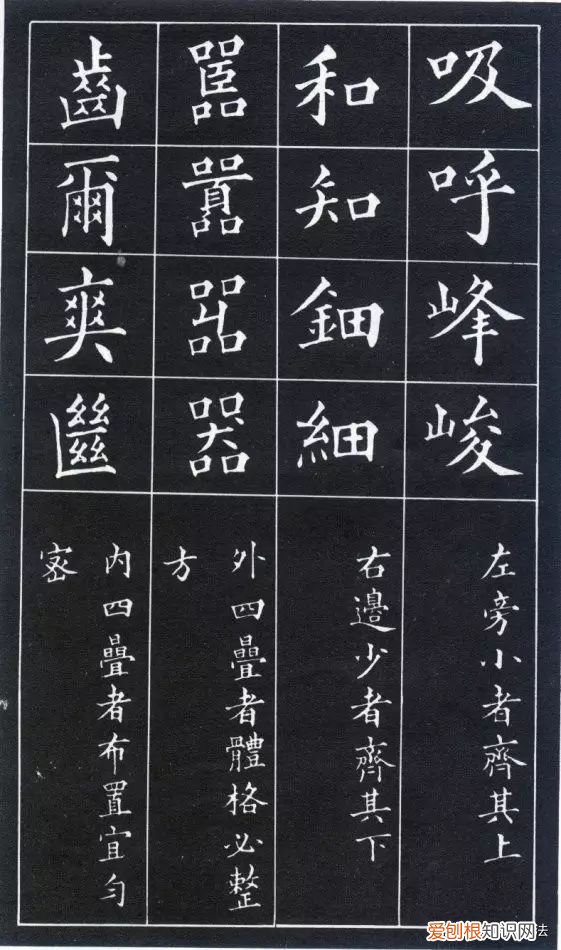 吸
呼
峰
峻
左旁小者齊其上
和
知
鈿
細
右邊少者齊其下
嚚
囂
嘂
器
外四疊者體格必整
方
齒
爾
爽
𢇍
內四疊者布置宜勻
密
爱刨根知识网法